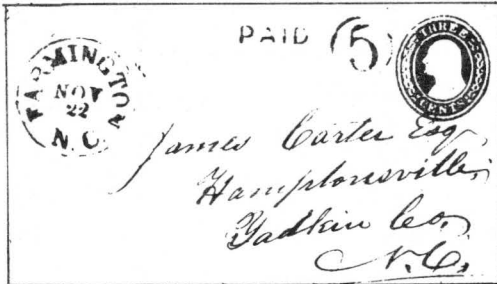 FARMINGTON
NOV
22
N.C.
PAID 5
THREE
CENTS
James Carter Esq
Hamptonsville
Yadkin Co,
N.C.